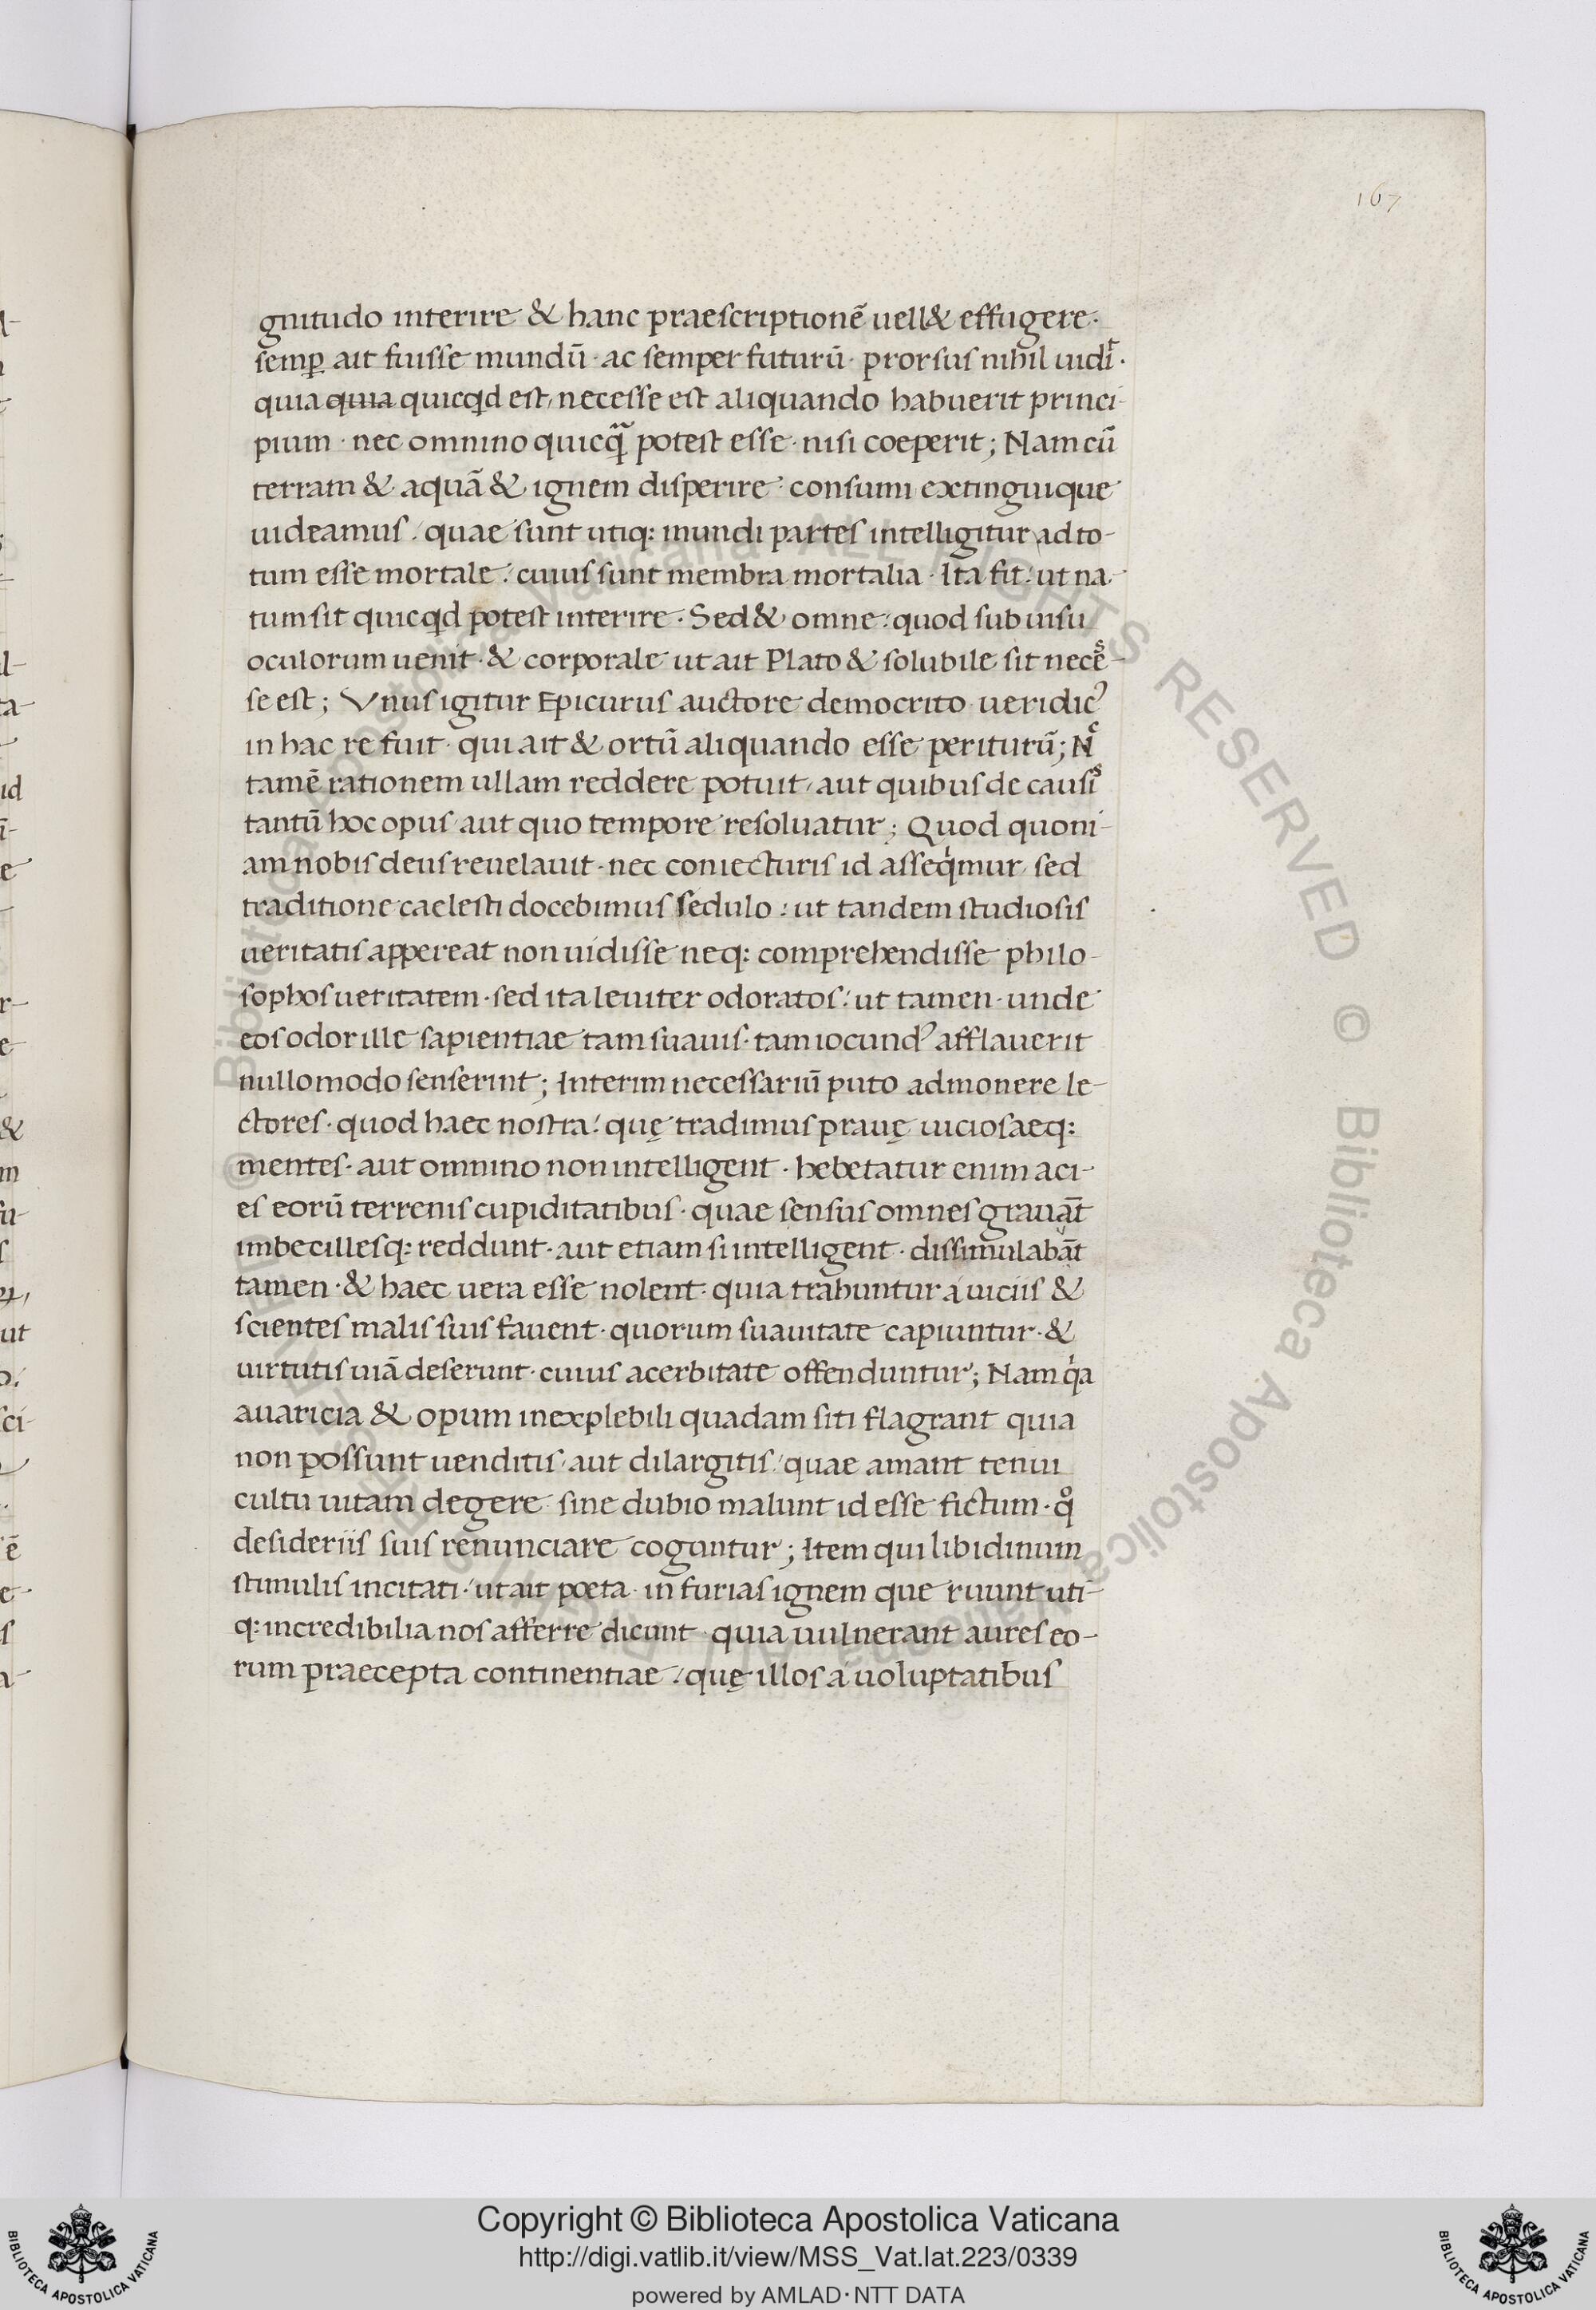 167
gnitudo interire & hanc praescriptionē uell& effugere·
semꝑ ait fuisse mundū· ac semper futurū· prorsus nihil uidiͭ·
quia quia quicꝗd est, necesse est aliquando habuerit princi-
pium· nec omnino quicꝗᷓ potest esse· nisi coeperit; Nam cū
terram & aquā & ignem disperire· consumi extinguique
uideamus· quae sunt utiq: mundi partes intelligitur ad to-
tum esse mortale: cuius sunt membra mortalia· Ita fit: ut na-
tum sit quicꝗd potest interire· Sed & omne: quod sub uisu
oculorum uenit· & corporale ut ait Plato & solubile sit necēˢ-
se est; Vnus igitur Epicurus auctore democrito ueridicꝰ
in hac re fuit· qui ait & ortū aliquando esse periturū; Nͨ
tamē rationem ullam reddere potuit, aut quibus de causiˢ
tantū hoc opus aut quo tempore resoluatur; Quod quoni-
am nobis deus reuelauit· nec coniecturis id asseqͥmur, sed
traditione caelesti docebimus sedulo: ut tandem studiosis
ueritatis appereat non uidisse neq: comprehendisse philo-
sophos ueritatem· sed ita leuiter odoratos: ut tamen· unde
eos odor ille sapientiae tam suauis· tam iocundꝰ afflauerit
nullo modo senserint; Interim necessariū puto admonere le-
ctores· quod haec nostra: quę tradimus prauę uiciosaeq:
mentes· aut omnino non intelligent· hebetatur enim aci-
es eorū terrenis cupiditatibus· quae sensus omnes grauāt
imbecillesq: reddunt· aut etiam si intelligent· dissimulabāt
tamen· & haec uera esse nolent· quia trahuntur a uiciis &
scientes malis suis fauent· quorum suauitate capiuntur· &
uirtutis uiā deserunt· cuius acerbitate offenduntur; Nam qͥa
auaricia & opum inexplebili quadam siti flagrant quia
non possunt uenditis, aut dilargitis: quae amant tenui
cultu uitam degere· sine dubio malunt id esse fictum· qͦ
desideriis suis renunciare cogantur; Item qui libidinum
stimulis incitati· ut ait poeta· in furias ignem que ruunt uti-
q: incredibilia nos afferre dicunt· quia uulnerant aures eo-
rum praecepta continentiae: quę illos a uoluptatibus
Copyright © Biblioteca Apostolica Vaticana
http://digi.vatlib.it/view/MSS_Vat.lat.223/0339
powered by AMLAD·NTT DATA